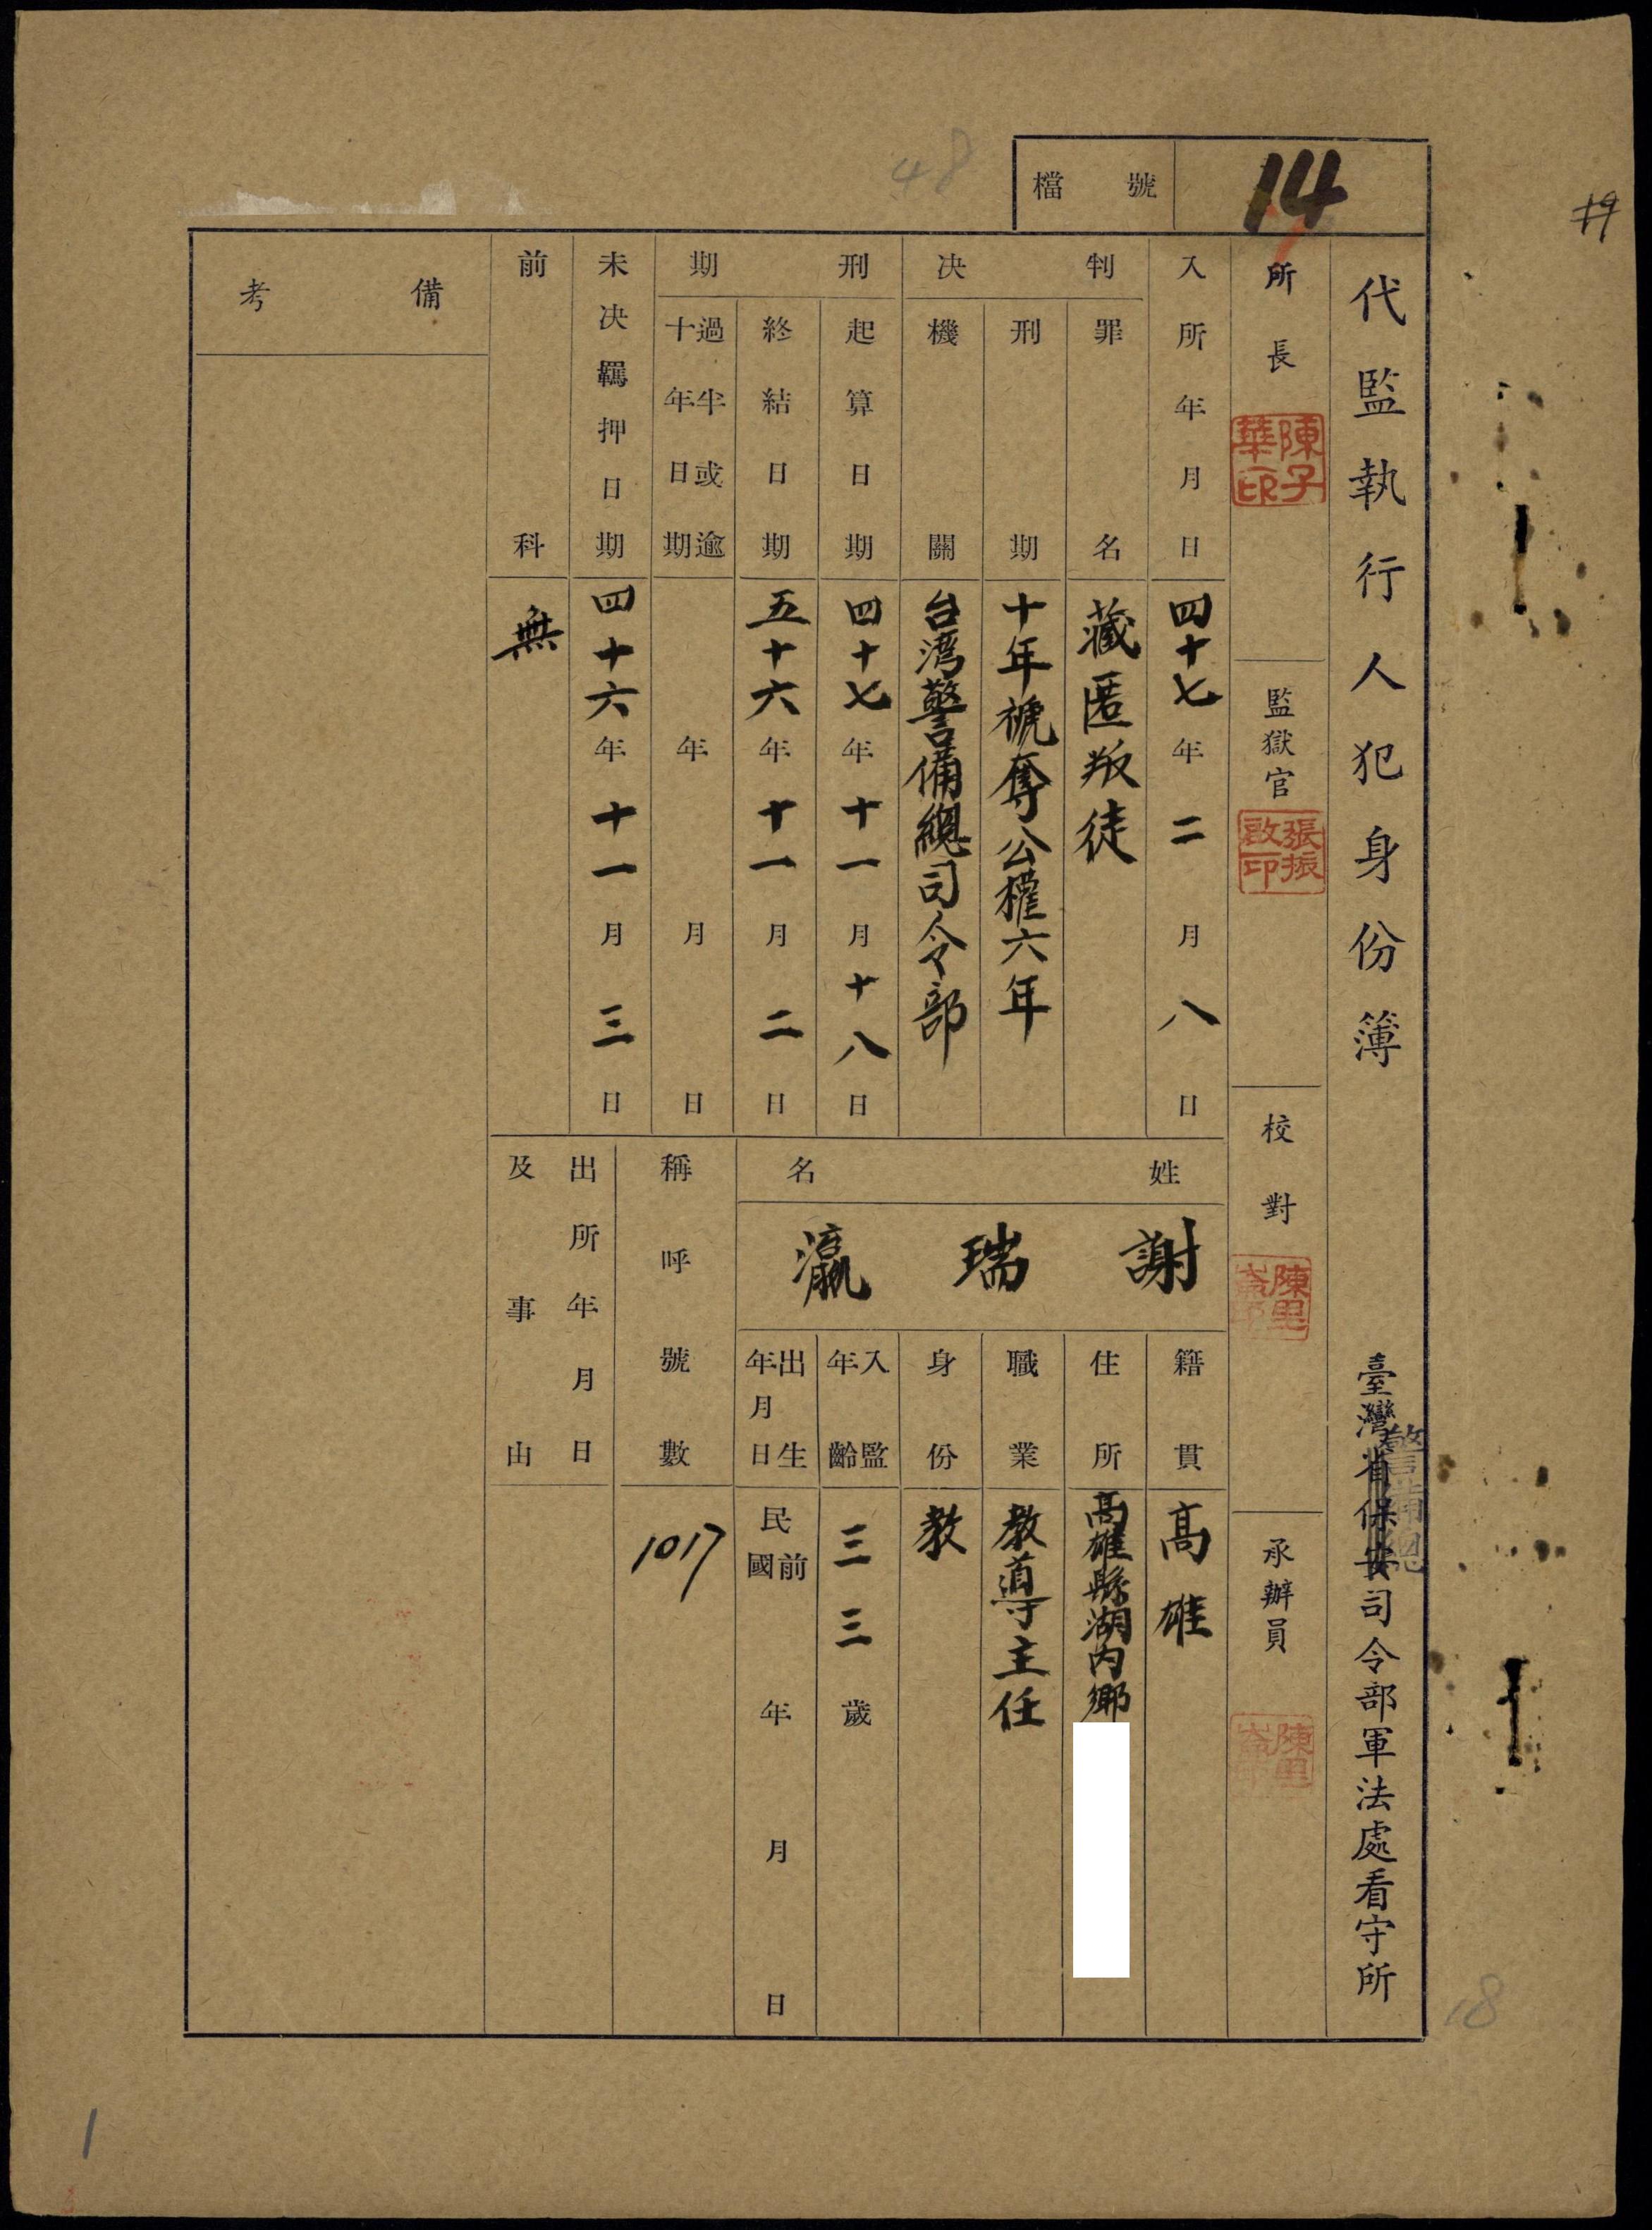 檔號
14
19
48
代監執行人犯身份簿
臺灣省保安司令部軍法處看守所
警備總
所長
陳子華印
監獄官
張振啟印
校對
承辦員
入所年月日
四十七年二月八日
判決
罪名
藏匿叛徒
刑期
十年褫奪公權六年
機關
台湾警備總司令部
刑期
起算日期
四十七年十一月十八日
終結日期
五十六年十一月二日
過半或逾十年日期
年月日
未決羈押日期
四十六年十一月三日
前科
無
備考
姓名
謝瑞瀛
籍貫
高雄
住所
高雄縣湖內鄉
職業
教導主任
身份
教
入監年齡
三三歲
出生年月日
民國前年月日
稱呼號數
1017
出所年月日及事由
18
1